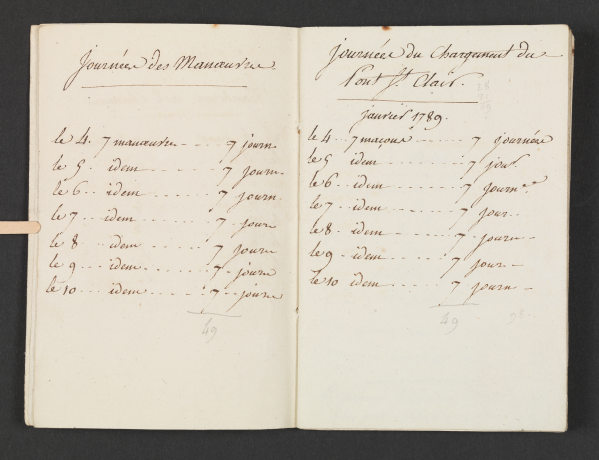 Journées des Manœuvre
le 4. 7 manœuvre - - - 7 journ.
le 5. idem - - - - - 7 journ.
le 6 .. idem - - - - - 7 journ.
le 7 .. idem - - - - - 7 journ
le 8 .. idem - - - - - 7 journ
le 9 .. idem - - - - - 7 journ
le 10 ... idem - - - - - 7 .. journ
49
Journées du Chargement du
Pont St. Clair.
janvier 1789.
le 4 .. 7 maçons - - - - - 7 journée
le 5 idem - - - - - 7 jour
le 6 .. idem - - - - - 7 journées
le 7 .. idem - - - - - 7 jour ..
le 8 .. idem - - - - - 7 journ -
le 9 .. idem - - - - - 7 jour -
le 10 idem - - - - - 7 journ -
49
98